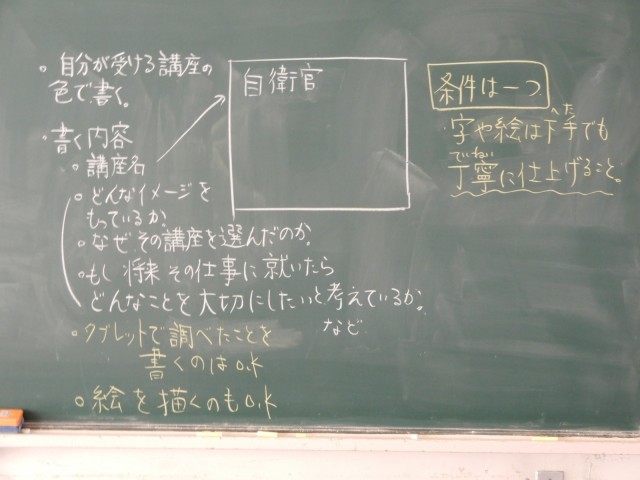 。自分が受ける講座の
色で書く。
。書く内容
。講座名
。どんなイメージを
もっているか。
。なぜその講座を選んだのか。
。もし将来その仕事に就いたら
どんなことを大切にしたいと考えているか。
など
。タブレットで調べたことを
書くのはO.K
。絵を描くのもO.K
自衛官
条件は一つ
へた
字や絵は下手でも
ていねい
丁寧に仕上げること。